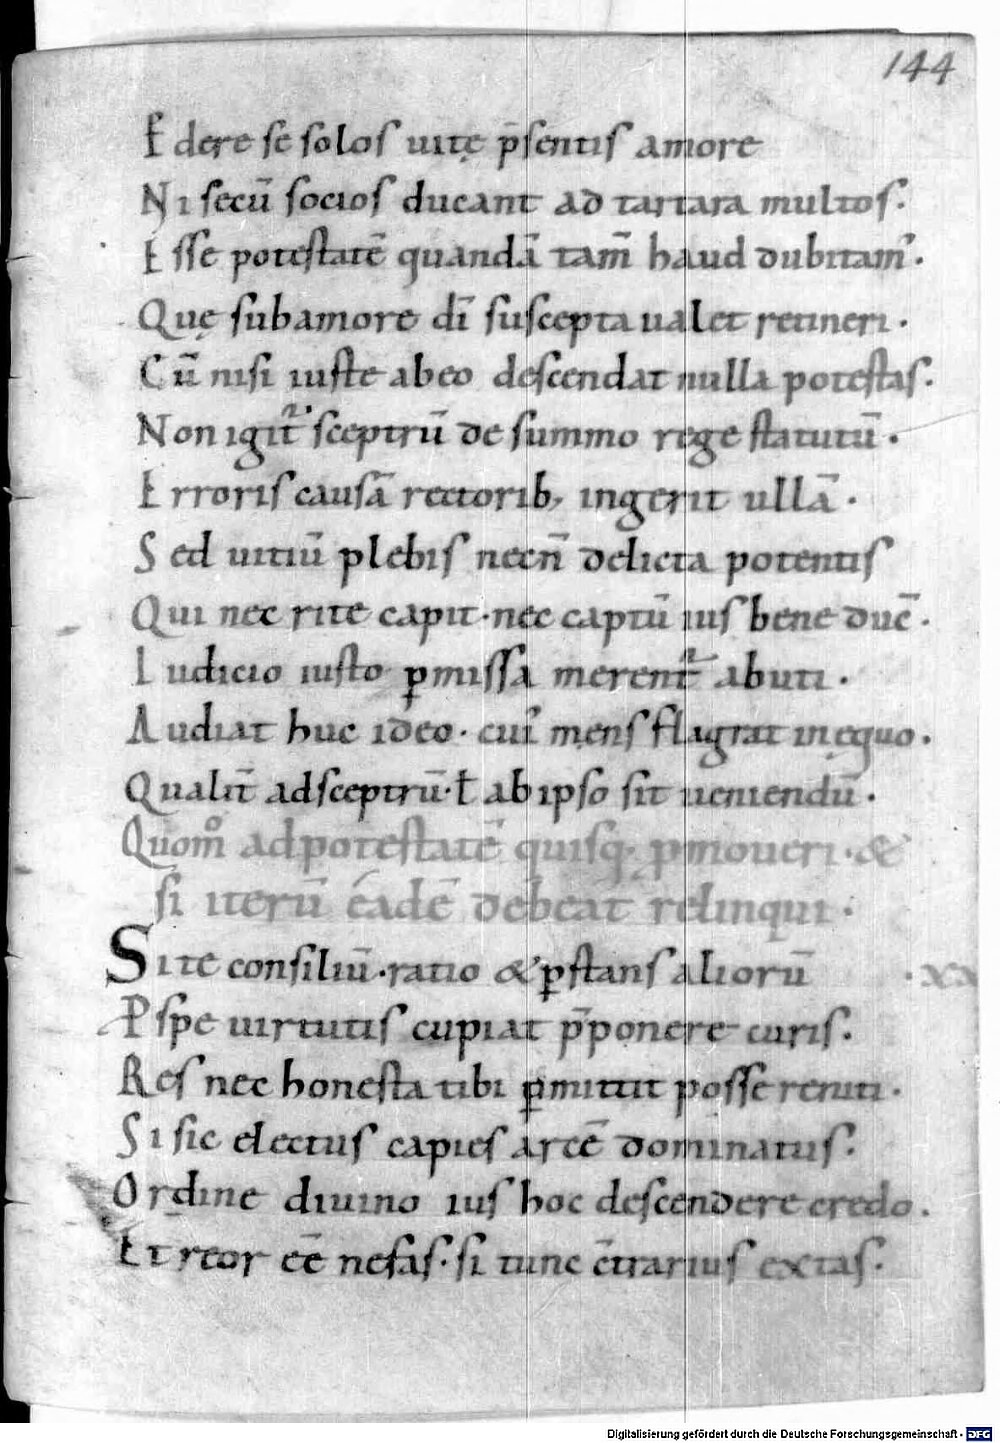 144
Edere se solos uitę p̄sentis amore
Ni secū socios ducant ad tartara multos.
Esse potestatē quandā tam̄ haud dubitam̄.
Quę sub amore dī suscepta ualet retineri.
Cū nisi iuste ab eo descendat nulla potestas.
Non igit᷑ sceptrū de summo rege statutū.
Erroris causā rectorib; ingerit ullā.
Sed uitiū plebis necn̄ delicta potentis
Qui nec rite capit. nec captū ius bene duc̄.
Iudicio iusto ꝑmissa merent᷑ abuti.
Audiat huc ideo. cui᷒ mens flagrat in ęquo.
Qualit̄ ad sceptrū. ł ab ipso sit ueniendū.
Quom̊ ad potestatē quisq; ꝓmoueri. &
si iterū eadē debeat relinqui.
Si te consiliū. ratio & p̱stans aliorū .xx
P spe uirtutis cupiat p̄ponere curis.
Res nec honesta tibi ꝑmittit posse reniti.
Si sic electus capies arcē dominatus.
Ordine diuino ius hoc descendere credo.
Et reor eē nefas. si tunc c̄trarius extas.
Digitalisierung gefördert durch die Deutsche Forschungsgemeinschaft - DFG